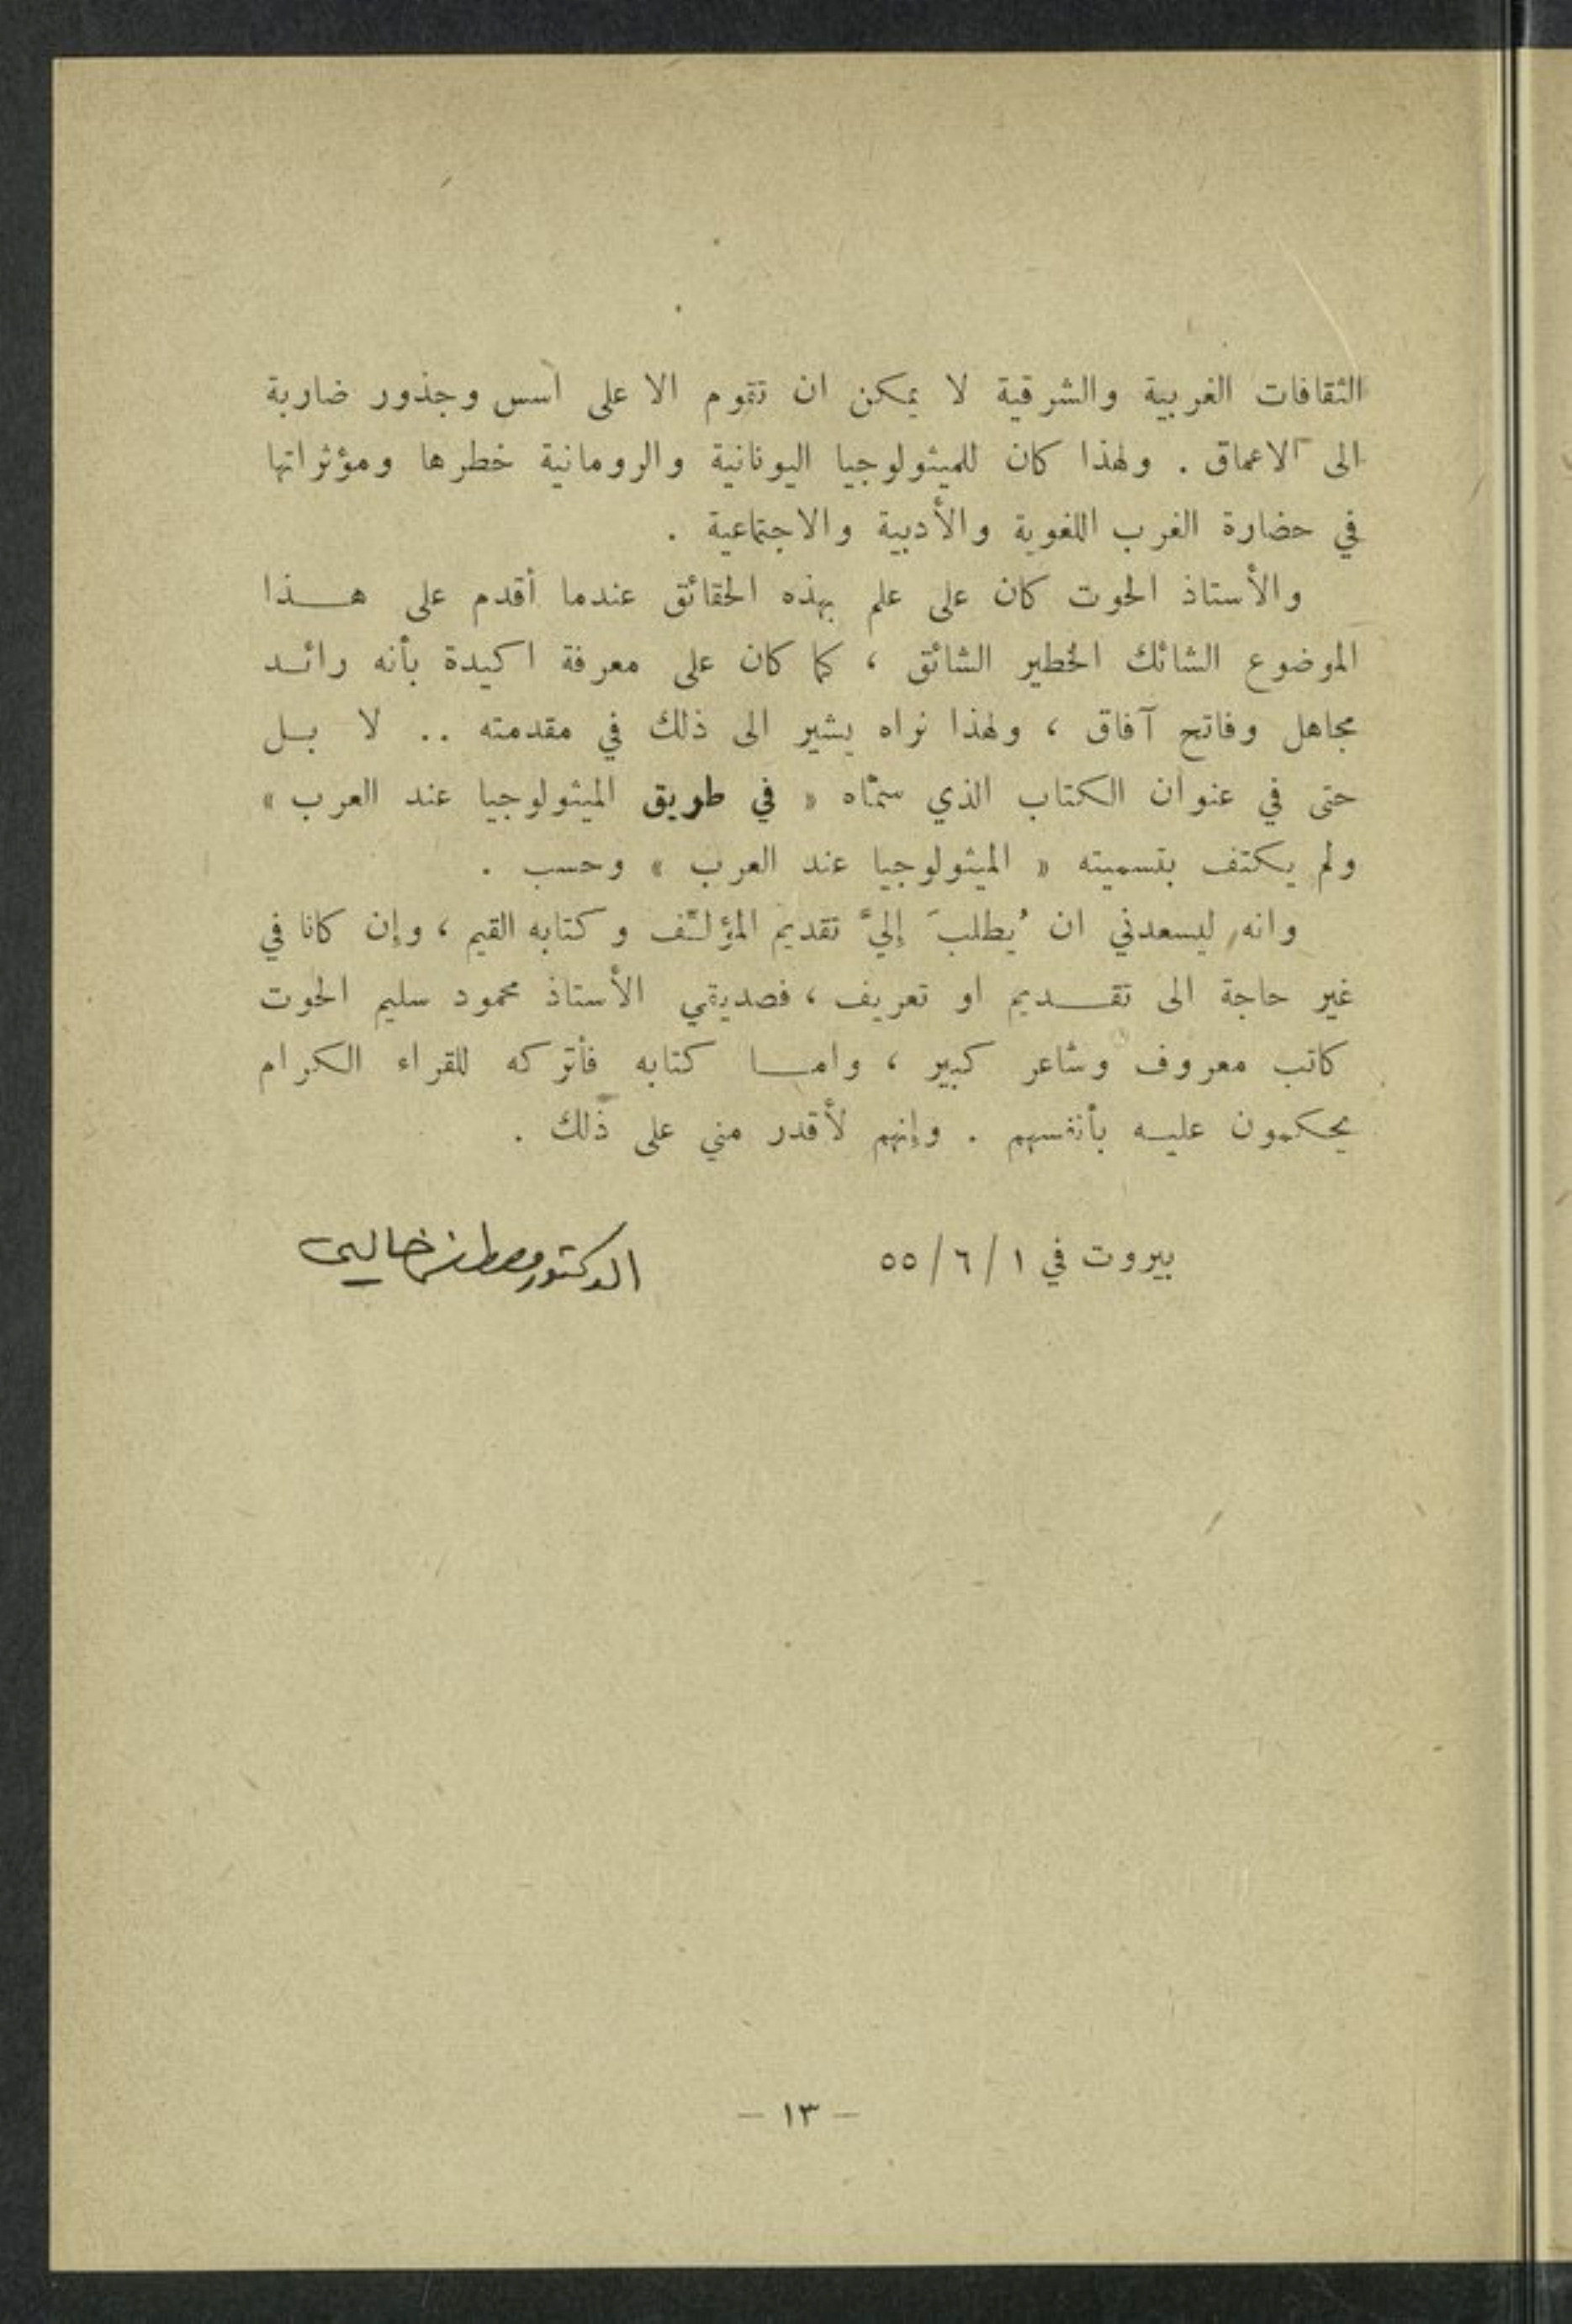 الثقافات الغربية والشرقية لا يمكن ان تقوم الا على اسس وجذور ضاربة
الى الاعماق . ولهذا كان للميثولوجيا اليونانية والرومانية خطرها ومؤثراتها
في حضارة الغرب اللغوية والأدبية والاجتماعية .
والأستاذ الحوت كان على علم بهذه الحقائق عندما أقدم على هــذا
الموضوع الشائك الخطير الشائق ، كما كان على معرفة اكيدة بأنه رائــد
مجاهل وفاتح آفاق ، ولهذا نراه يشير الى ذلك في مقدمته .. لا بــل
حتى في عنوان الكتاب الذي سمّاه « في طريق الميثولوجيا عند العرب »
ولم يكتف بتسميته « الميثولوجيا عند العرب » وحسب .
وانه ليسعدني ان يُطلبَ إليَّ تقديم المؤلّف وكتابه القيم ، وإن كانا في
غير حاجة الى تقــديم او تعريف ، فصديقي الأستاذ محمود سليم الحوت
كاتب معروف وشاعر كبير ، وامــا كتابه فأتركه للقراء الكرام
يحكمون عليــه بأنفسهم . وإنهم لأقدر مني على ذلك .
بيروت في ١ / ٦ / ٥٥
الدكتور مصطفى خالدي
— ١٣ —